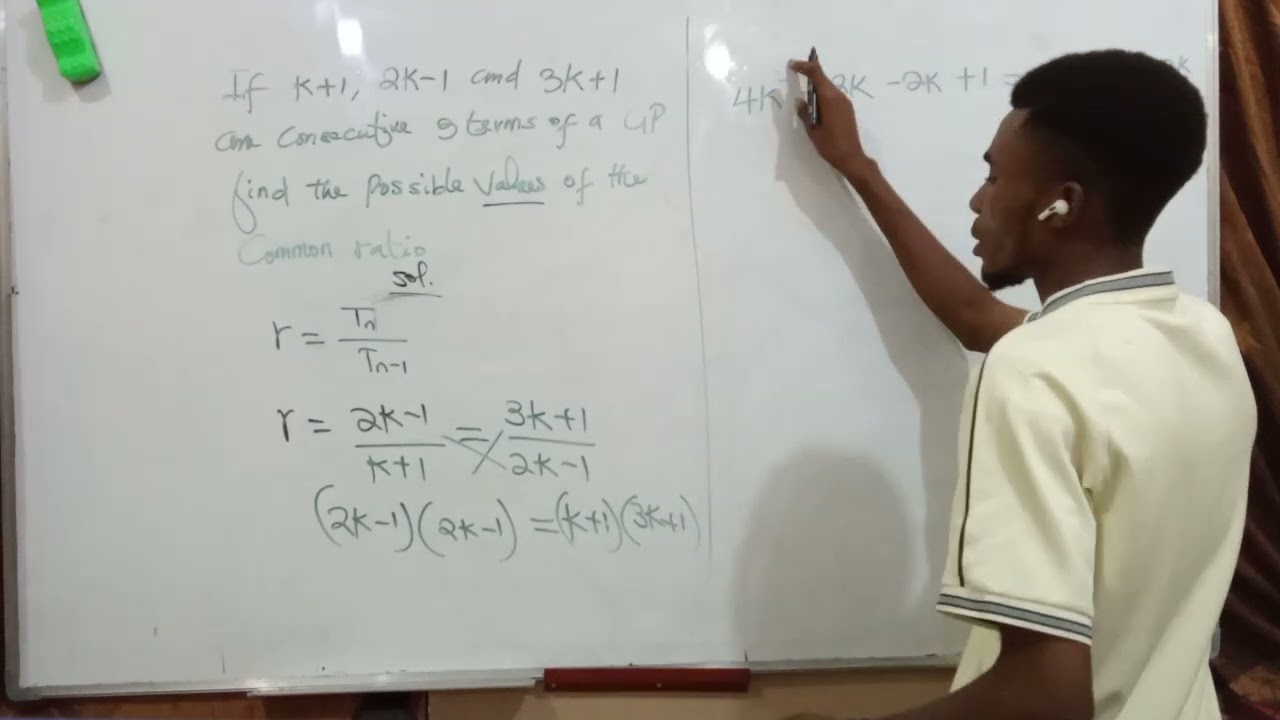 If k+1, 2k-1 and 3k+1
are consecutive terms of a GP
find the possible values of the
Common ratio
sol.
r = Tn / Tn-1
r = 2k-1 / k+1 = 3k+1 / 2k-1
(2k-1)(2k-1) = (k+1)(3k+1)
4k 2k -2k +1 =